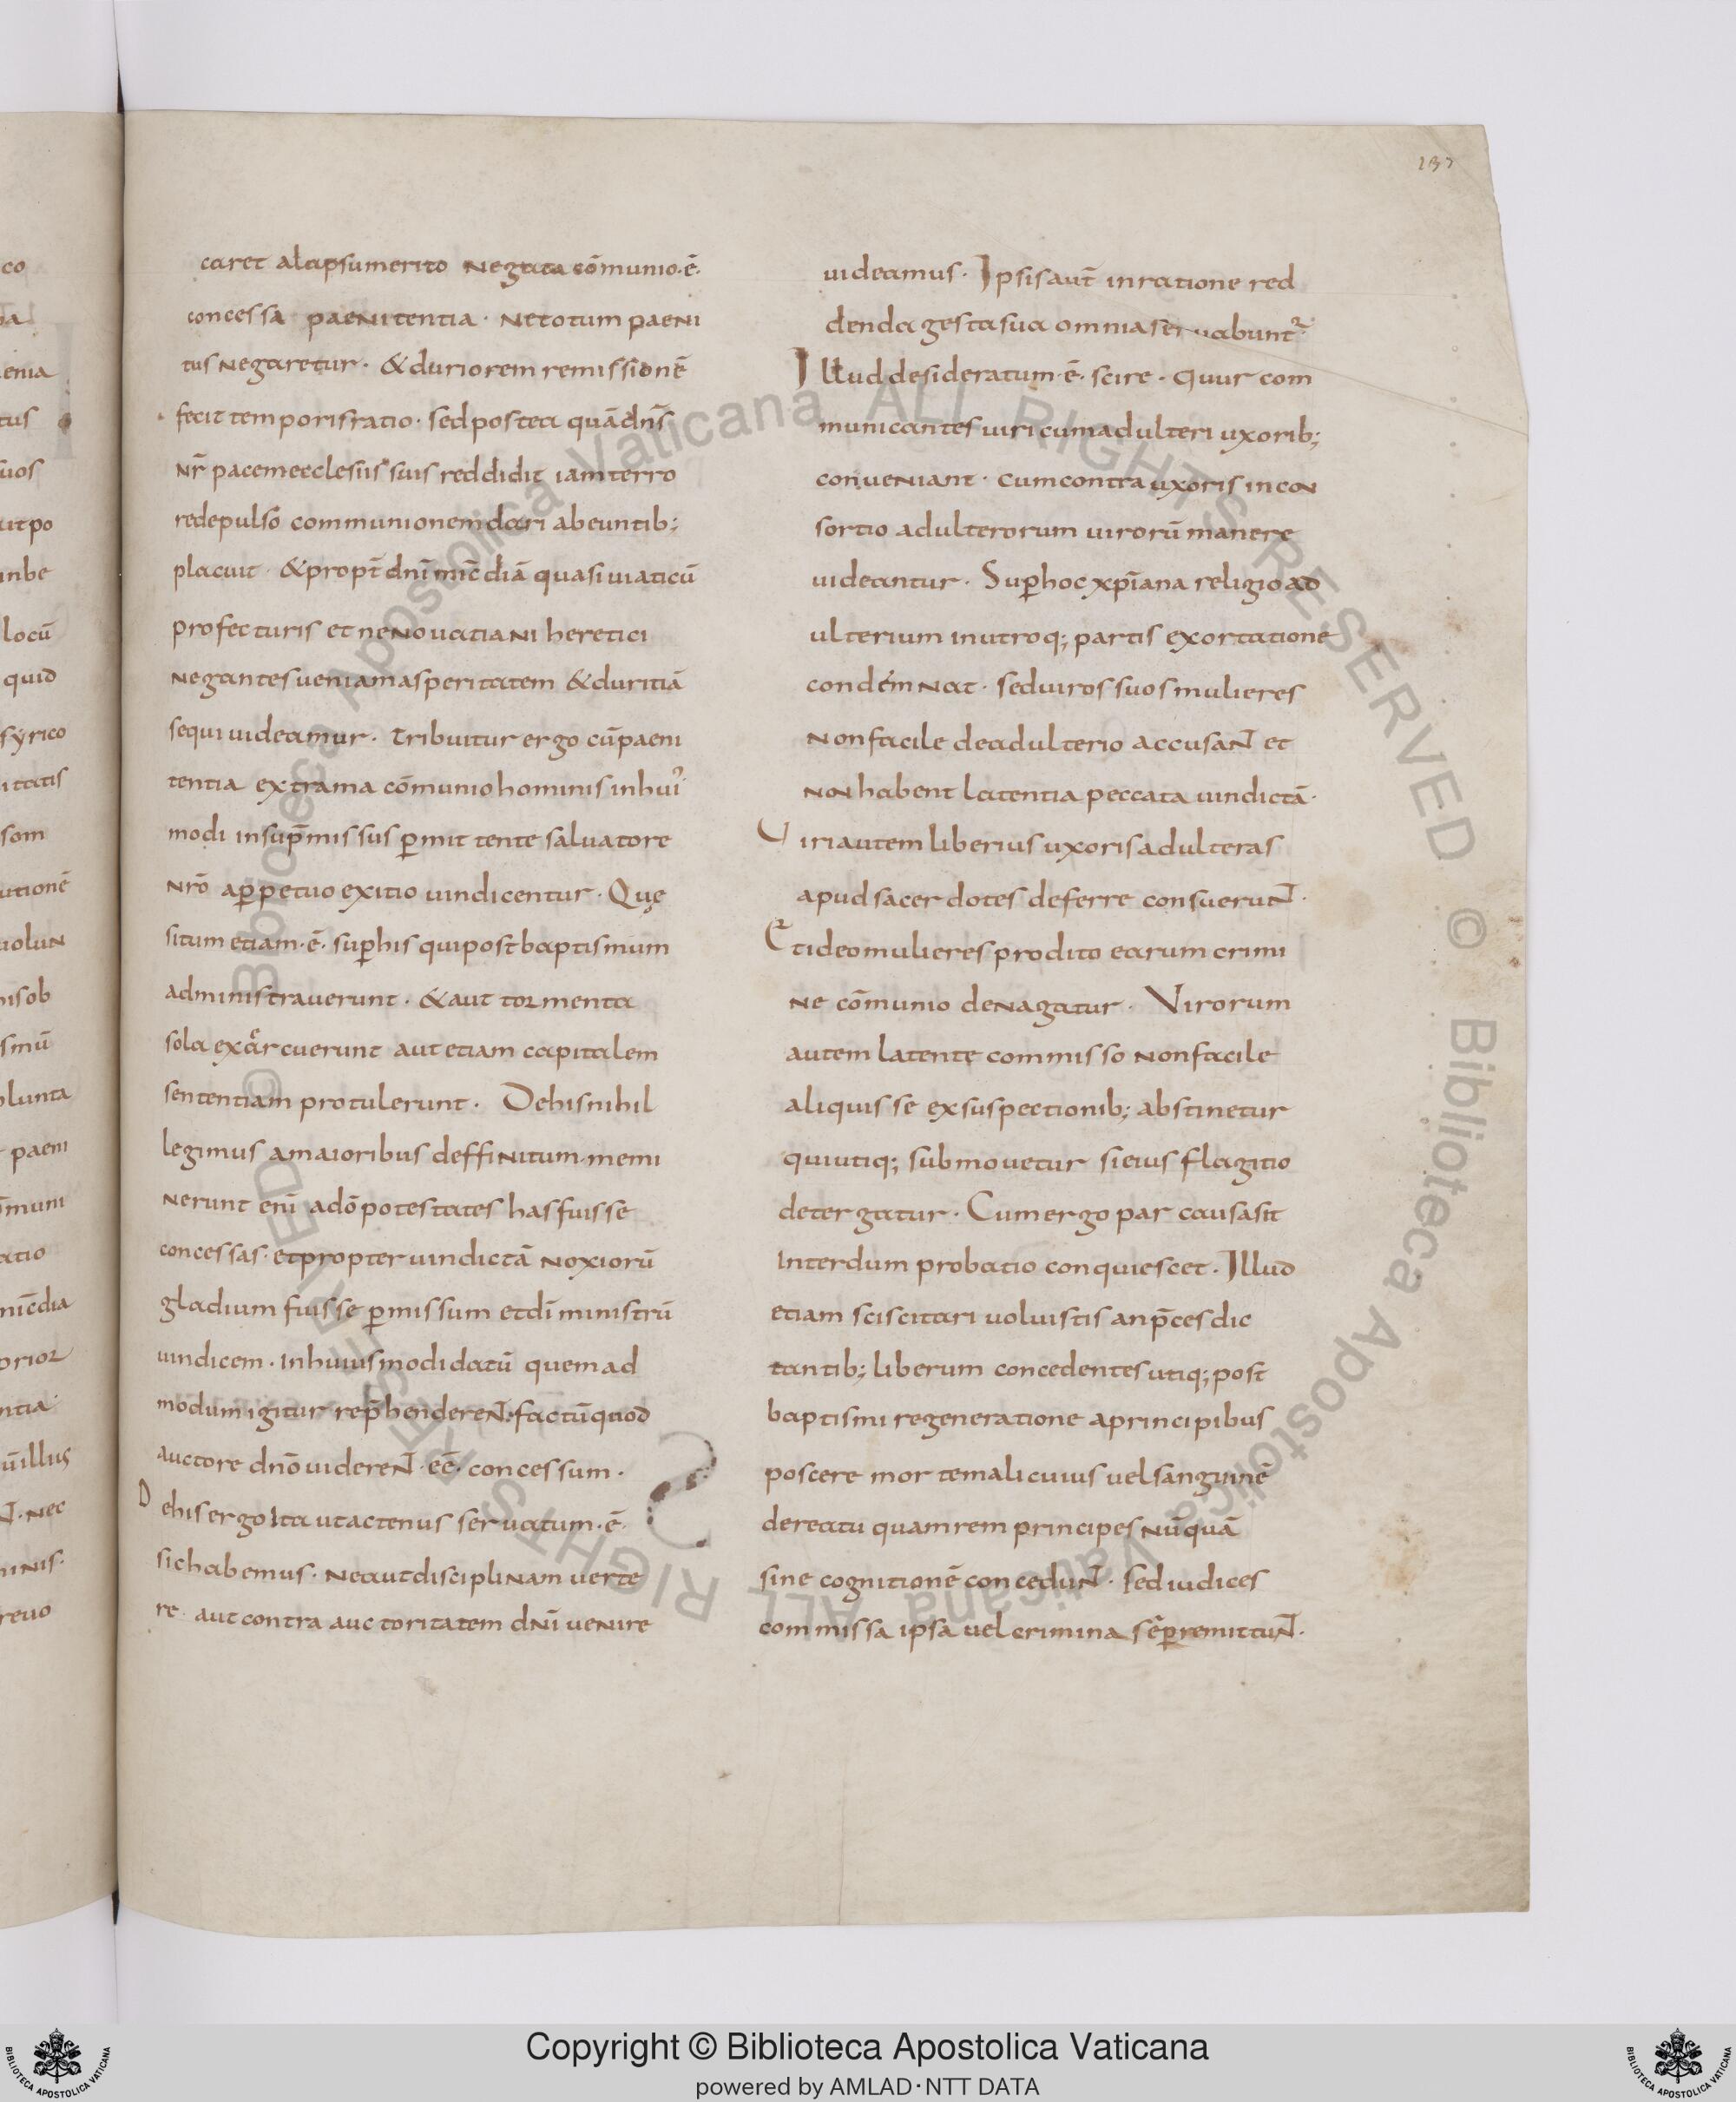 137
caret alapsumerito negata cōmunio·ē·
concessa paenitentia· netotum paeni
tus negaretur· &duriorem remissionē
fecit temporis ratio· sed postea quā dn̄s
nr̄ pacem ecclesiis suis reddidit iam terro
redepulso communionem dari abeuntib;
placuit· &propt̄ dnī mīc diā quasi uiaticū
profecturis et ne nouatiani heretici
negantes ueniam asperitatem &duritiā
sequi uideamur· tribuitur ergo cū paeni
tentia extrama cōmunio hominis inhui᾽
modi insup̄missus ꝑmit tente saluatore
nrō aꝑpetuo exitio uindicentur· Quę
situm etiam·ē· suꝑ his qui post baptismum
administrauerunt· &aut tormenta
sola exaͤrcuerunt aut etiam capitalem
sententiam protulerunt· De his nihil
legimus amaioribus deffinitum· memi
nerunt enī adō potestates has fuisse
concessas· et propter uindictā noxiorū
gladium fuisse ꝑmissum et dī ministrū
uindicem· inhuiusmodi datū quem ad
modum igitur rep̄henderen̄t· factū quod
auctore dnō uideren̄t· eē· concessum·
De his ergo ita ut actenus seruatum·ē·
sic habemus· ne aut disciplinam uerte
re· aut contra auctoritatem dnī uenire
uideamus· Ipsis aut̄ in ratione red
denda gesta sua omnia seruabunt᷑
Illud desideratum·ē· scire· quur com
municantes uiri cum adulteri uxorib;
conueniant· cum contra uxoris in con
sortio adulterorum uirorū manere
uideantur· Suꝑ hoc xp̄iana religio ad
ulterium inutroq; partis exortatione
condémnat· sed uiros suos mulieres
non facile de adulterio accusan̄t et
non habent latentia peccata uindictā·
Uiri autem liberius uxoris adulteras
apud sacerdotes deferre consuerun̄t·
Et ideo mulieres prodito earum crimi
ne cōmunio denagatur· Virorum
autem latente commisso non facile
aliquis se ex suspectionib; abstinetur
qui utiq; submouetur si eius flagitio
detergatur· Cum ergo par causa sit
interdum probatio conquiescet· Illud
etiam sciscitari uoluistis an p̄ces dic
tantib; liberum concedentes utiq; post
baptismi regeneratione aprincipibus
poscere mortem alicuius uel sanguinē
de reatu quam rem principes nū quā
sine cognitionē concedun̄t· sed iudices
commissa ipsa uel crimina sēꝑ remittun̄t·
Copyright © Biblioteca Apostolica Vaticana
powered by AMLAD·NTT DATA